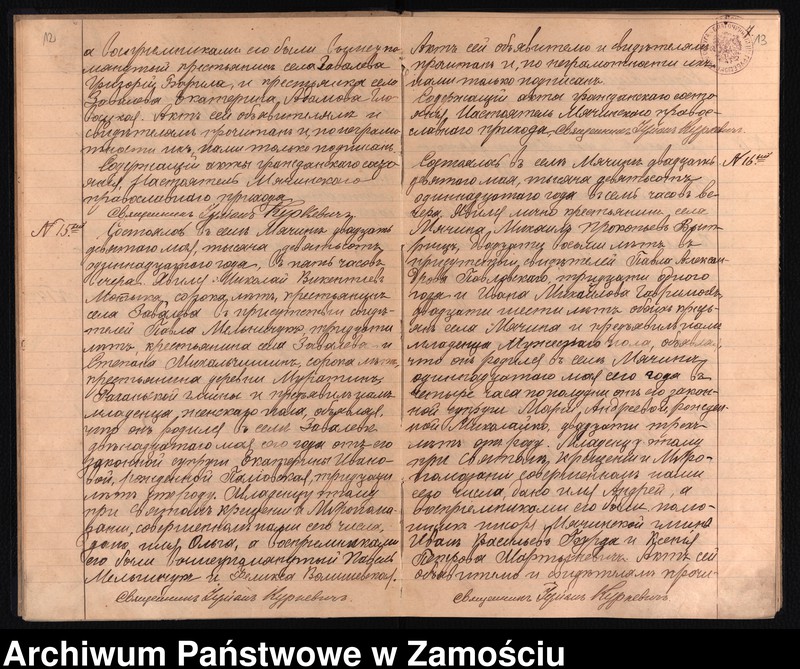 12
а воспремниками его были вышеупо-
мянутый крестьянин села Завалева
Григорій и крестьянка села
Завалева Екатерина Адамова
Актъ сей объявителю и
свидѣтелямъ прочитанъ и по неграмот-
ности ихъ, нами только подписанъ.
Содержащій акты гражданскаго состо-
янія, Настоятель Мячинскаго
православнаго прихода
Священникъ Куркевичъ
№ 15ый
Состоялось въ селѣ Мячинѣ двадцать
девятаго мая, тысяча девятьсотъ
одиннадцатаго года, въ пять часовъ
вечера. Явился Николай Викентіевъ
Мотыка, сорока лѣтъ, крестьянинъ
села Завалева въ присутствіи свидѣ-
телей Павла Мельничука, тридцати
лѣтъ, крестьянина села Завалева и
Степана Михальчишинъ, сорока лѣтъ,
крестьянина деревни
гмины и предъявилъ намъ
младенца женскаго пола, объявляя,
что онъ родился въ селѣ Завалевѣ
двѣнадцатаго мая сего года отъ его
законной супруги Екатерины Ивано-
вой, рожденной тридцати
лѣтъ отъ роду. Младенцу этому
при Святомъ крещеніи и Мѵропома-
заніи, совершенномъ нами сего числа,
дано имя Ольга, а воспремниками
его были вышеупомянутый Павелъ
Мельничукъ и
Священникъ Куркевичъ.
13
Актъ сей объявителю и свидѣтелямъ
прочитанъ и, по неграмотности ихъ,
нами только подписанъ.
Содержащій акты гражданскаго состо-
янія, Настоятель Мячинскаго правос-
лавнаго прихода Священникъ Куркевичъ.
№ 16ый
Состоялось въ селѣ Мячинѣ двадцать
девятаго мая, тысяча девятьсотъ
одиннадцатаго года въ семь часовъ ве-
чера. Явился лично крестьянинъ села
Мячина, Михаилъ Прокопьевъ
двадцати восьми лѣтъ въ
присутствіи свидѣтелей Павла Алексан-
дрова тридцати одного
года и Ивана Михайлова
двадцати шести лѣтъ обоихъ кресть-
янъ села Мячина и предъявилъ намъ
младенца мужескаго пола, объявляя,
что онъ родился въ селѣ Мячинѣ
одиннадцатаго мая сего года въ
четыре часа пополудни отъ его закон-
ной супруги Маріи Андреевой, рожден-
ной Михалайко, двадцати трехъ
лѣтъ отъ роду. Младенцу этому
при Святомъ крещеніи и Мѵро-
помазаніи совершенномъ нами
сего числа, дано имя Андрей, а
воспремниками его были помо-
щникъ писаря Мячинской гмины
Иванъ Васильевъ и Ксенія
Петрова Мартыневичъ. Актъ сей
объявителю и свидѣтелямъ прочи-
Священникъ Куркевичъ
Archiwum Państwowe w Zamościu